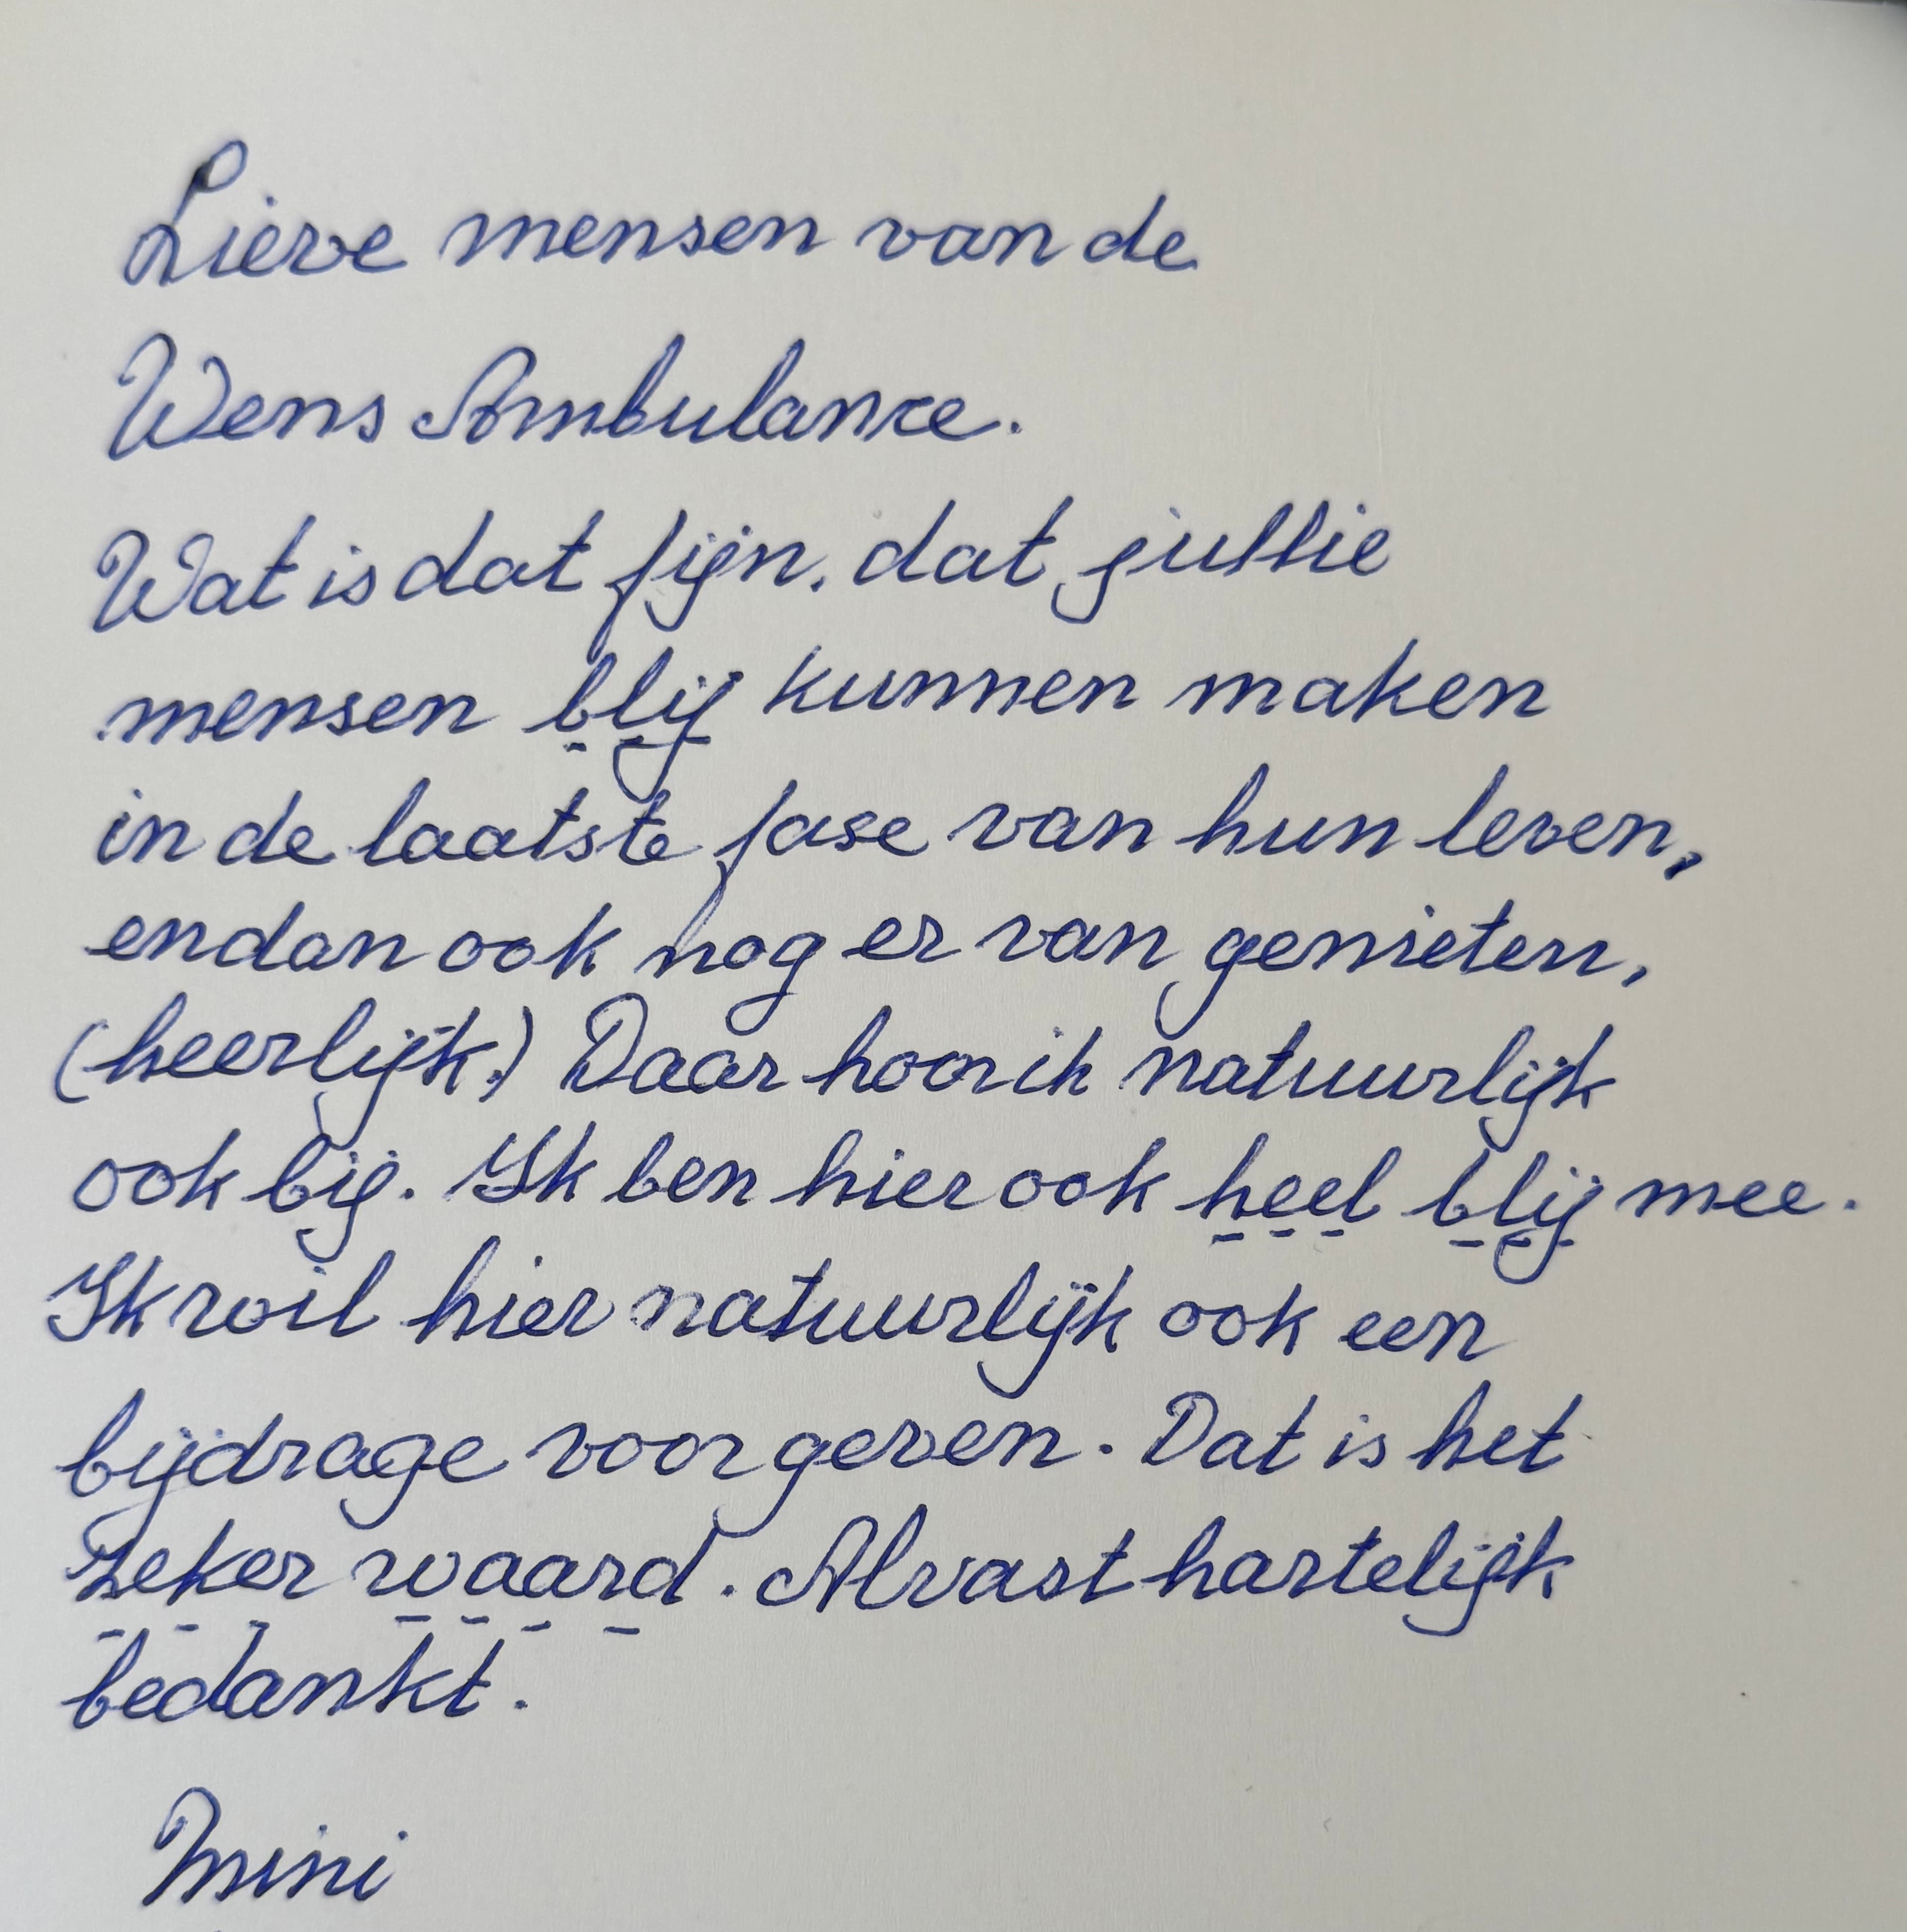 Lieve mensen van de
Wens Ambulance.
Wat is dat fijn, dat jullie
mensen blij kunnen maken
in de laatste fase van hun leven,
en dan ook nog er van genieten,
(heerlijk.) Daar hoor ik natuurlijk
ook bij. Ik ben hier ook heel blij mee.
Ik wil hier natuurlijk ook een
bijdrage voor geven. Dat is het
zeker waard. Alvast hartelijk
bedankt.
Mini